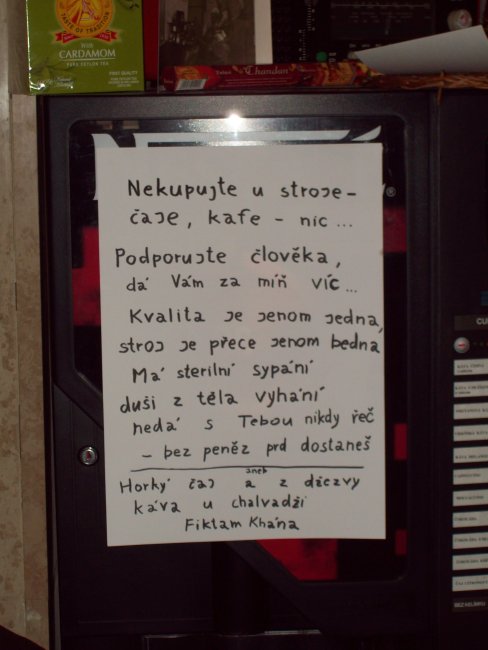 TASTE OF TRADITION
With
CARDAMOM
PURE CEYLON TEA
FAST QUALITY
Chandan
Nekupujte u stroje-
čaje, kafe - nic ...
Podporujte člověka,
dá Vám za míň víc ...
Kvalita je jenom jedna,
stroj je přece jenom bedna
Má sterilní sypání
duši z těla vyhání
nedá s Tebou nikdy řeč
- bez peněz prd dostaneš
aneb
Horký čaj a z džezvy
káva u chalvadží
Fiktam Khána
BEZ KELÍMKU